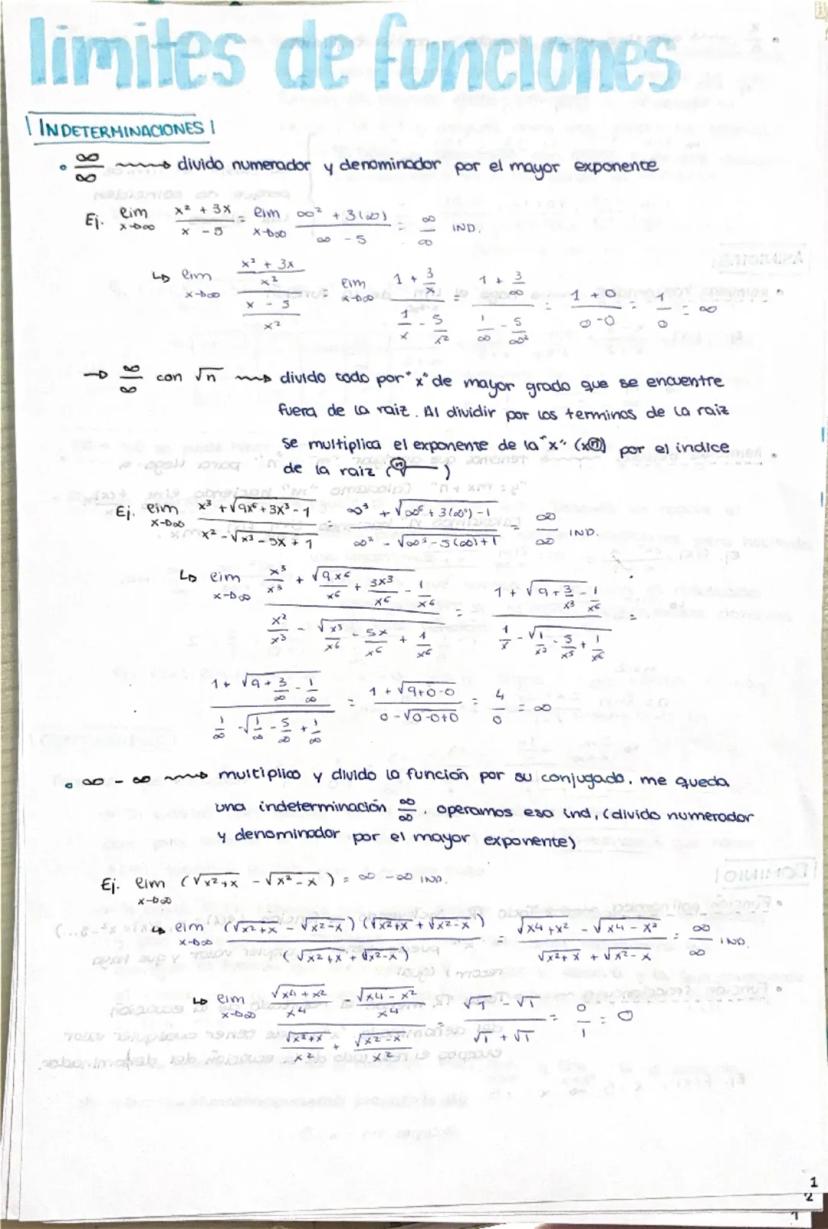 limites de funciones
INDETERMINACIONES
• ∞/∞ → divido numerador y denominador por el mayor exponente
Ej. lim x→∞ (x² + 3x)/(x - 5) = lim x→∞ (∞² + 3(∞))/(∞ - 5) = ∞/∞ IND.
↳ lim x→∞ ((x² + 3x)/x²)/((x - 5)/x²) lim x→∞ (1 + 3/x)/(1/x - 5/x²) = (1 + 3/∞)/(1/∞ - 5/∞²) = (1 + 0)/(0 - 0) = 1/0 = ∞
→ ∞/∞ con √n → divido todo por "x" de mayor grado que se encuentre
fuera de la raiz. Al dividir por los terminos de la raiz
se multiplica el exponente de la "x" (xⁿ) por el indice
de la raiz (ⁿ√ )
Ej. lim x→∞ (x³ + √9x⁶ + 3x³ - 1)/(x² - √x³ - 5x + 1) = (∞³ + √∞⁶ + 3(∞³) - 1)/(∞² - √∞³ - 5(∞) + 1) = ∞/∞ IND.
↳ lim x→∞ (x³/x³ + √9x⁶/x⁶ + 3x³/x⁶ - 1/x⁶)/(x²/x³ - √x³/x⁶ - 5x/x⁶ + 1/x⁶) = (1 + √9 + 3/x³ - 1/x⁶)/(1/x - √1/x³ - 5/x⁵ + 1/x⁶) =
(1 + √9 + 3/∞ - 1/∞)/(1/∞ - √1/∞ - 5/∞ + 1/∞) = (1 + √9+0-0)/(0 - √0-0+0) = 4/0 = ∞
• ∞ - ∞ → multiplico y divido la función por su conjugado, me queda
una indeterminación ∞/∞, operamos esa ind, (divido numerador
y denominador por el mayor exponente)
Ej. lim x→∞ (√x²+x - √x²-x) = ∞ - ∞ IND.
↳ lim x→∞ (√x²+x - √x²-x)(√x²+x + √x²-x)/(√x²+x + √x²-x) = (√x⁴+x² - √x⁴-x²)/(√x²+x + √x²-x) = ∞/∞ IND.
↳ lim x→∞ (√x⁴+x²/x⁴ - √x⁴-x²/x⁴)/(√x²+x/x² + √x²-x/x²) = (√1 - √1)/(√1 + √1) = 0/1 = 0
1
2